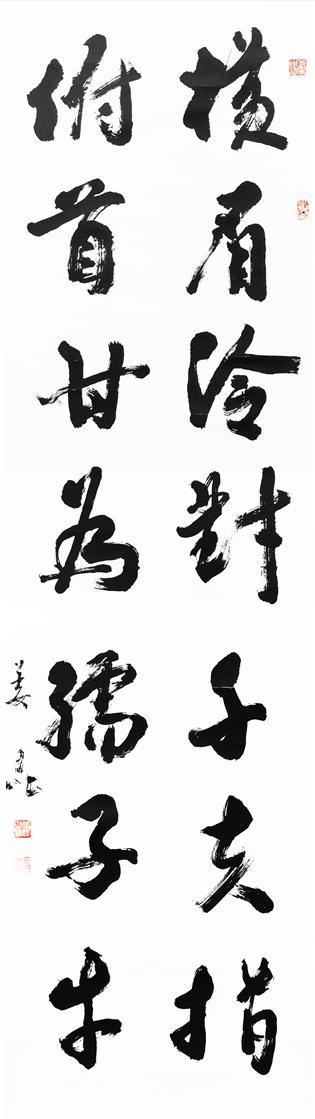 横眉冷對千夫指
俯首甘為孺子牛
姜